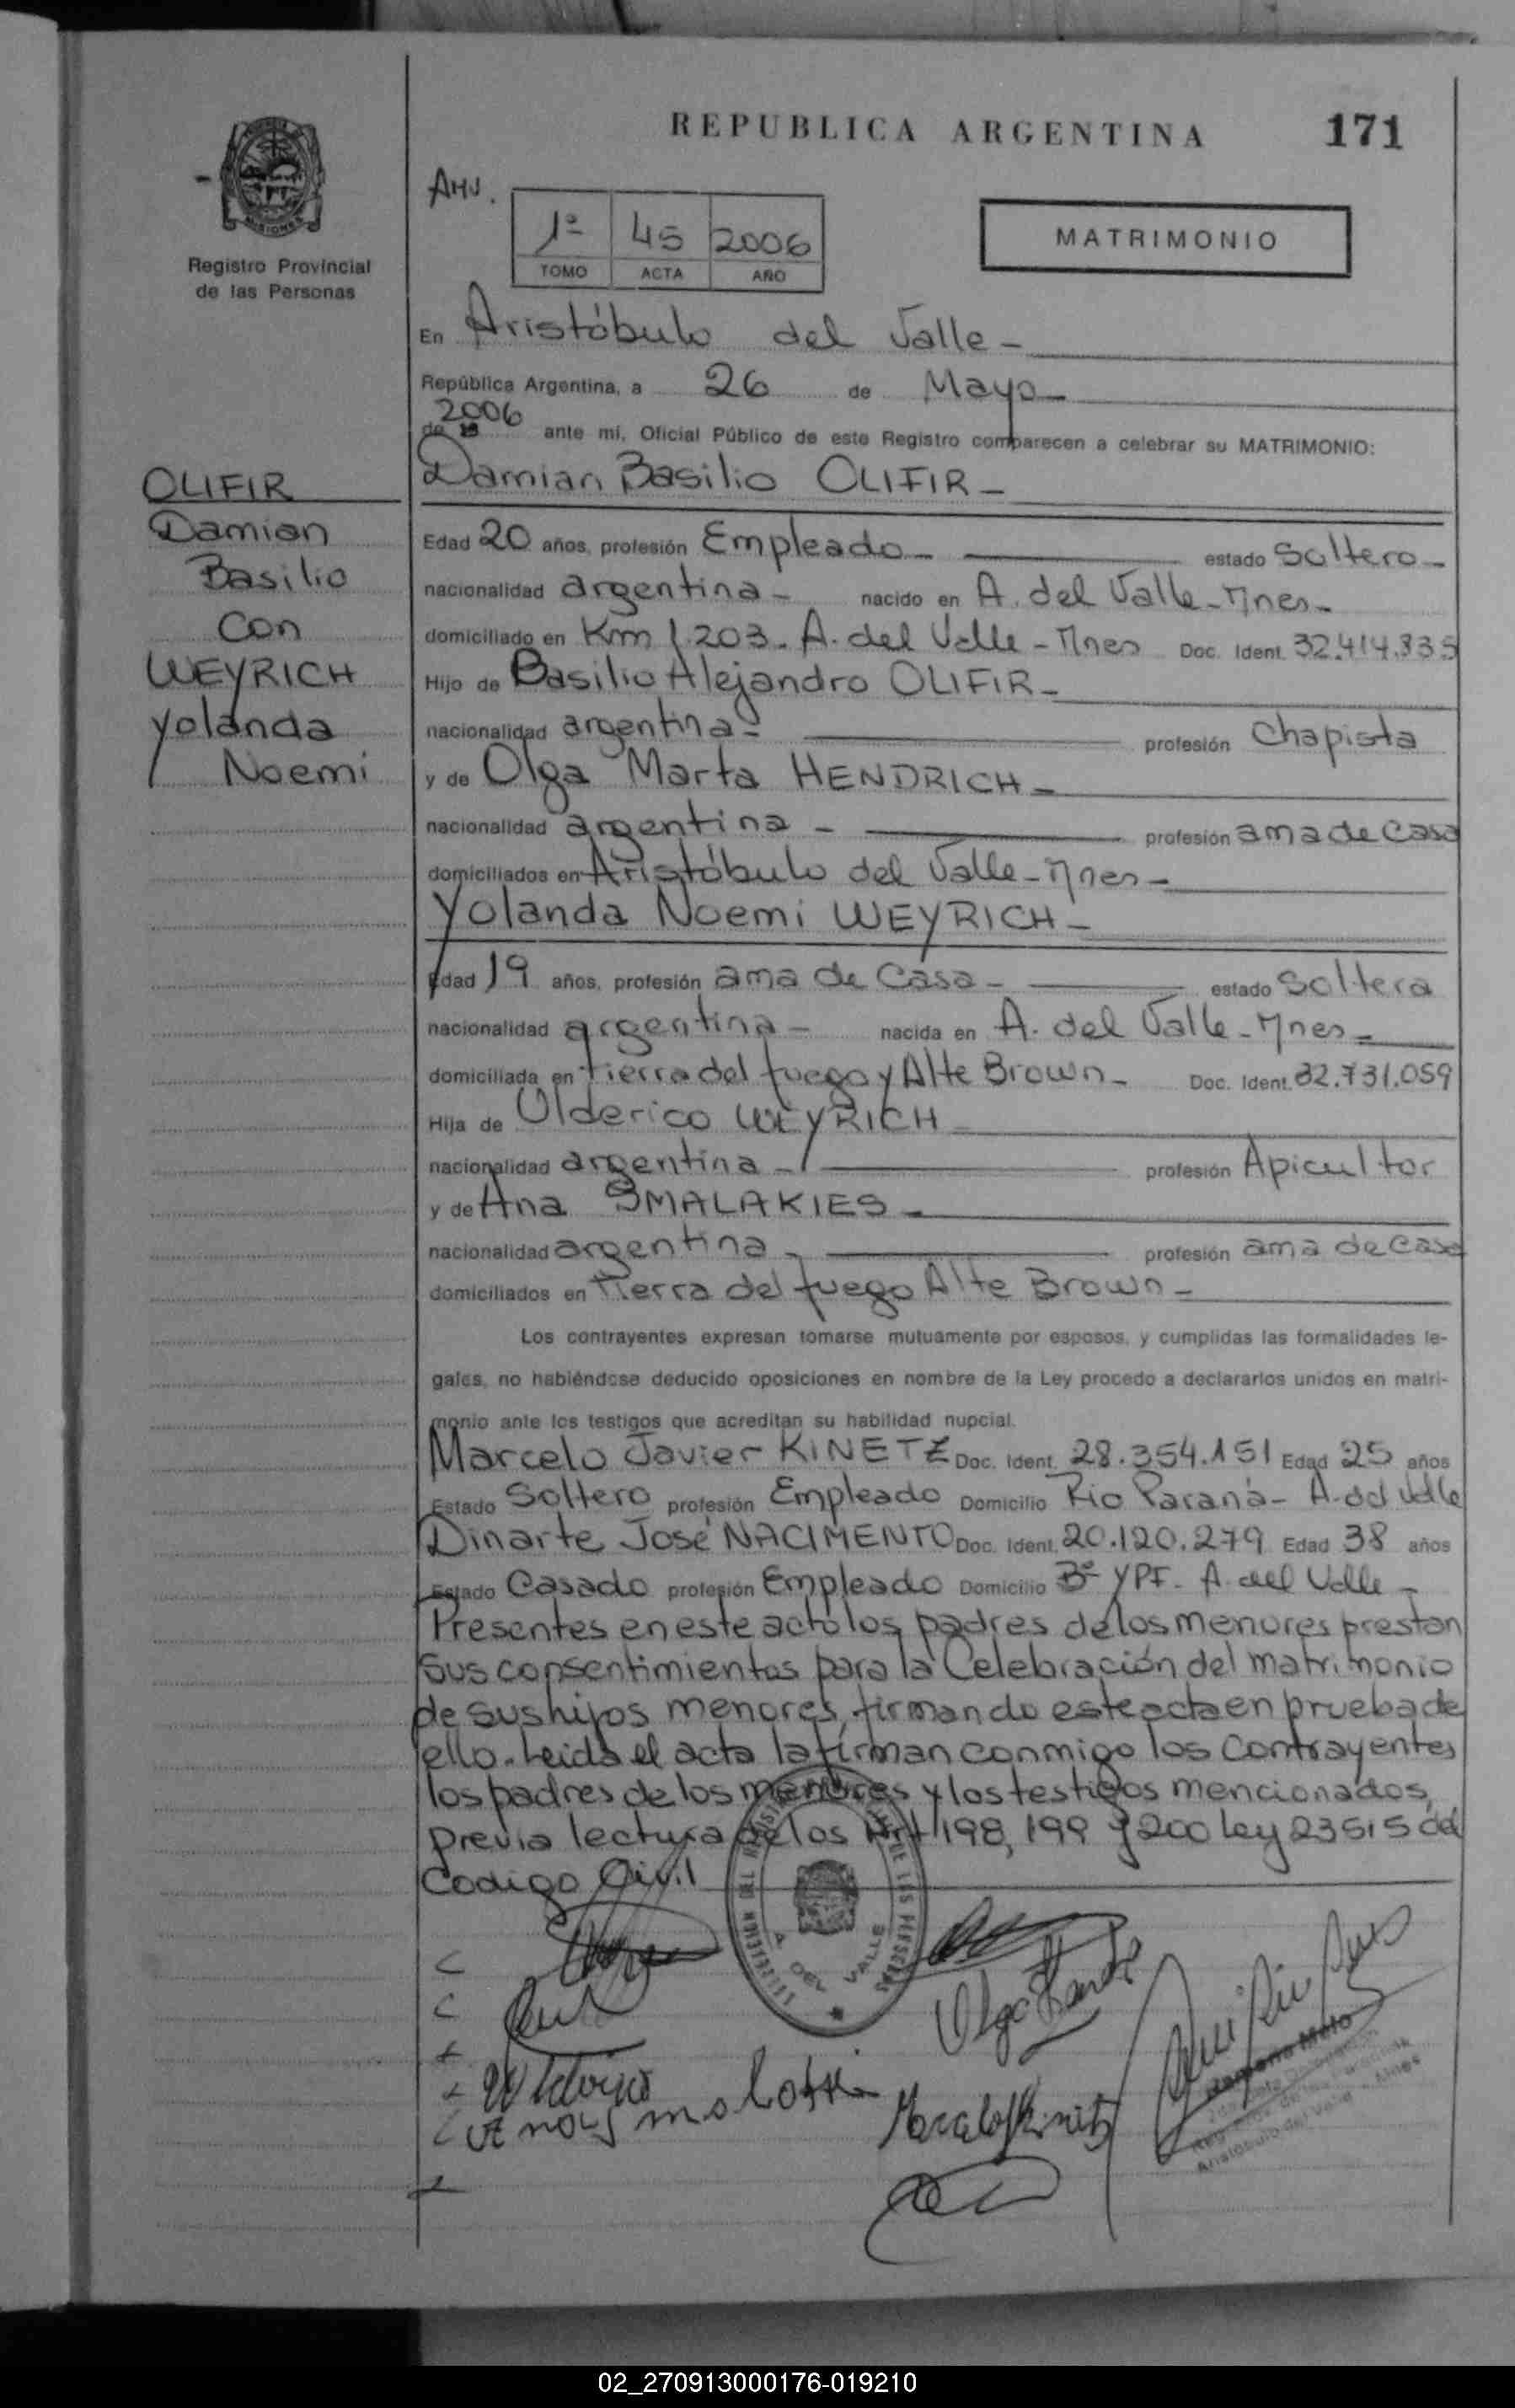 REPUBLICA ARGENTINA 171
MISIONES
Registro Provincial
de las Personas
1º 45 2006
TOMO ACTA AÑO
MATRIMONIO
En Aristóbulo del Valle -
República Argentina, a 26 de Mayo
de 2006 ante mí, Oficial Público de este Registro comparecen a celebrar su MATRIMONIO:
Damian Basilio OLIFIR -
OLIFIR
Damian
Basilio
Con
WEYRICH
Yolanda
Noemi
Edad 20 años, profesión Empleado - estado Soltero -
nacionalidad argentina - nacido en A. del Valle - Mnes -
domiciliado en Km 1.203 - A. del Valle - Mnes Doc. Ident. 32.414.335
Hijo de Basilio Alejandro OLIFIR -
nacionalidad argentina - profesión Chapista
y de Olga Marta HENDRICH -
nacionalidad argentina - profesión ama de Casa
domiciliados en Aristóbulo del Valle - Mnes -
Yolanda Noemi WEYRICH -
Edad 19 años, profesión ama de Casa - estado Soltera
nacionalidad argentina - nacida en A. del Valle - Mnes -
domiciliada en tierra del fuego y Alte Brown - Doc. Ident. 32.731.059
Hija de Olderico WEYRICH
nacionalidad argentina - profesión Apicultor
y de Ana SMALAKIES -
nacionalidad argentina - profesión ama de Casa
domiciliados en tierra del fuego Alte Brown -
Los contrayentes expresan tomarse mutuamente por esposos, y cumplidas las formalidades le-
gales, no habiéndose deducido oposiciones en nombre de la Ley procedo a declararlos unidos en matri-
monio ante los testigos que acreditan su habilidad nupcial.
Marcelo Javier KINETZ Doc. Ident. 28.354.151 Edad 25 años
Estado Soltero profesión Empleado Domicilio Rio Paraná - A. del Valle
Dinarte José NACIMENTO Doc. Ident. 20.120.279 Edad 38 años
Estado Casado profesión Empleado Domicilio Bº YPF - A. del Valle -
Presentes en este acto los padres de los menores prestan
sus consentimientos para la Celebración del matrimonio
de sus hijos menores, firmando este acta en prueba de
ello. Leida el acta la firman conmigo los Contrayentes
los padres de los menores y los testigos mencionados,
previa lectura de los Art 198, 199 y 200 Ley 23515 del
Codigo Civil
A. DEL VALLE
02_270913000176-019210